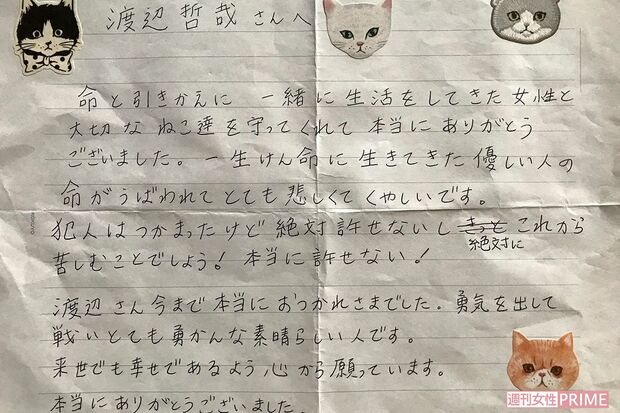 渡辺哲哉さんへ
命と引きかえに 一緒に生活をしてきた女性と
大切な ねこ達を守ってくれて 本当に ありがとう
ございました。一生けん命に生きてきた優しい人の
命がうばわれて とても悲しくて くやしいです。
犯人は つかまったけど 絶対許せないし きっと これから
絶対に
苦しむことでしょう! 本当に許せない!
渡辺さん今まで本当に おつかれさまでした。勇気を出して
戦い とても勇かんな素晴らしい人です。
来世でも幸せであるよう 心から願っています。
本当にありがとうございました。
週刊女性PRIME